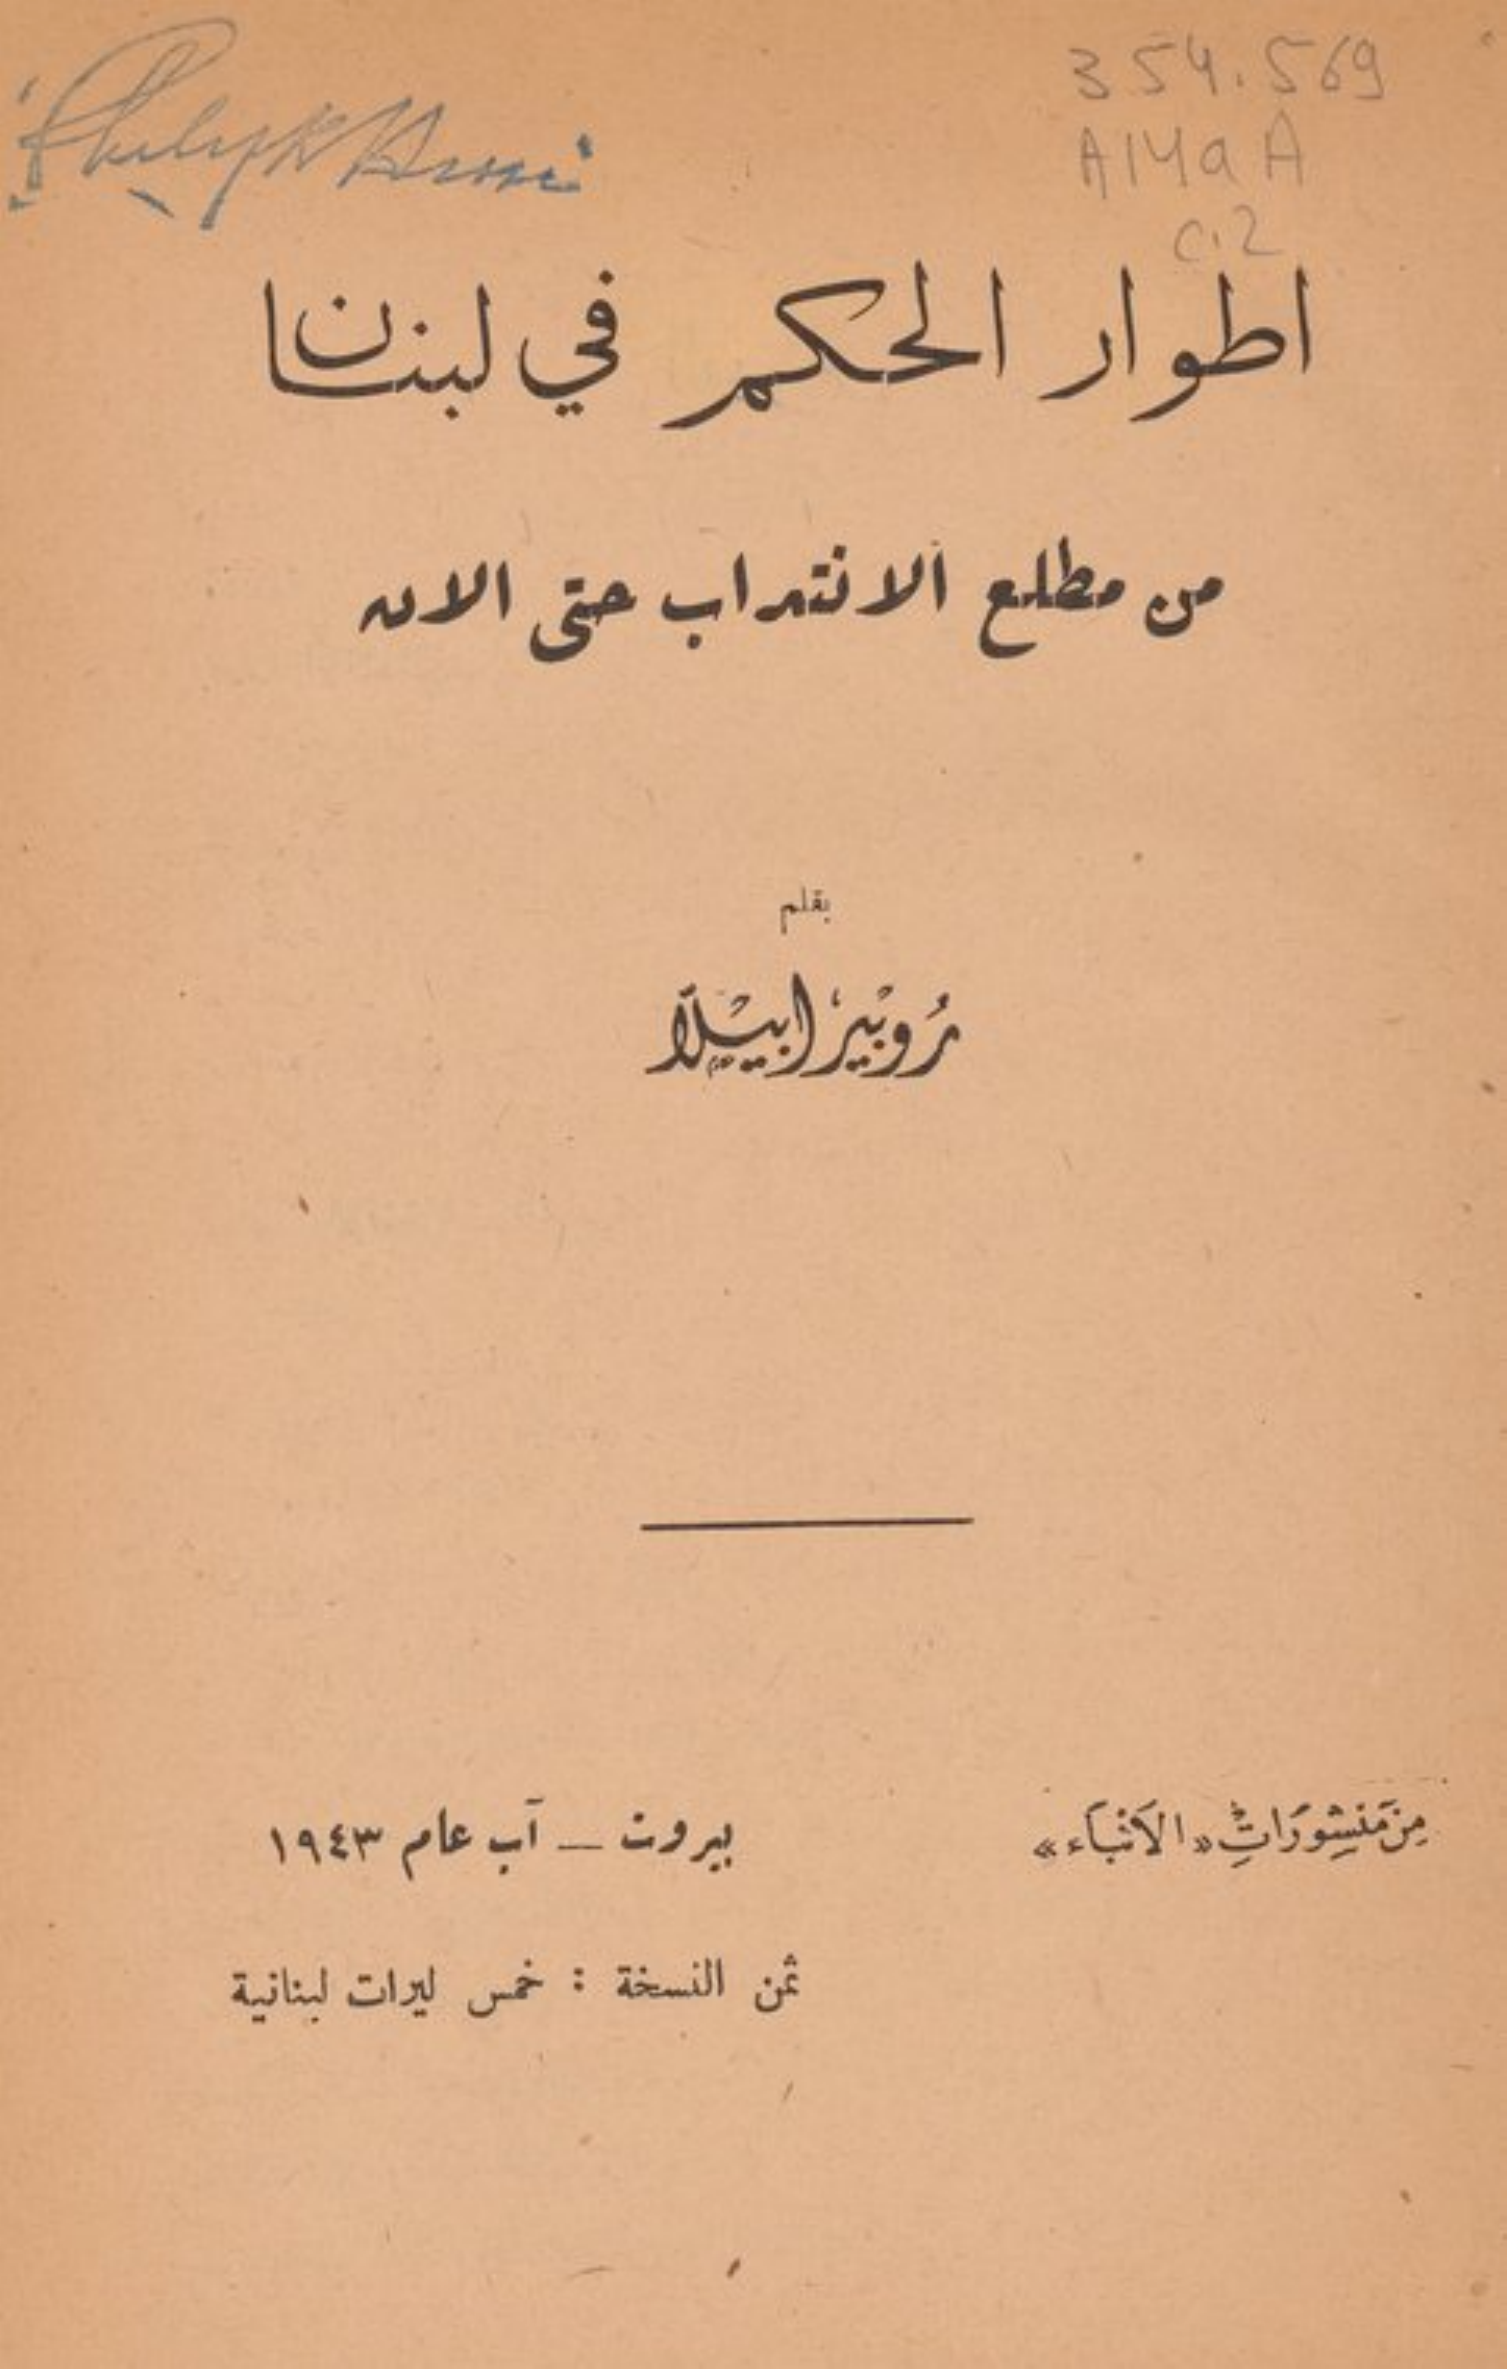 354.569
A149A
c.2
اطوار الحكم في لبنان
من مطلع الانتداب حتى الان
بقلم
رُوبْير ابيْلَا
مِنْ مَنْشُورَاتِ «الأَنْبَاء»
بيروت – آب عام ١٩٤٣
ثمن النسخة : خمس ليرات لبنانية